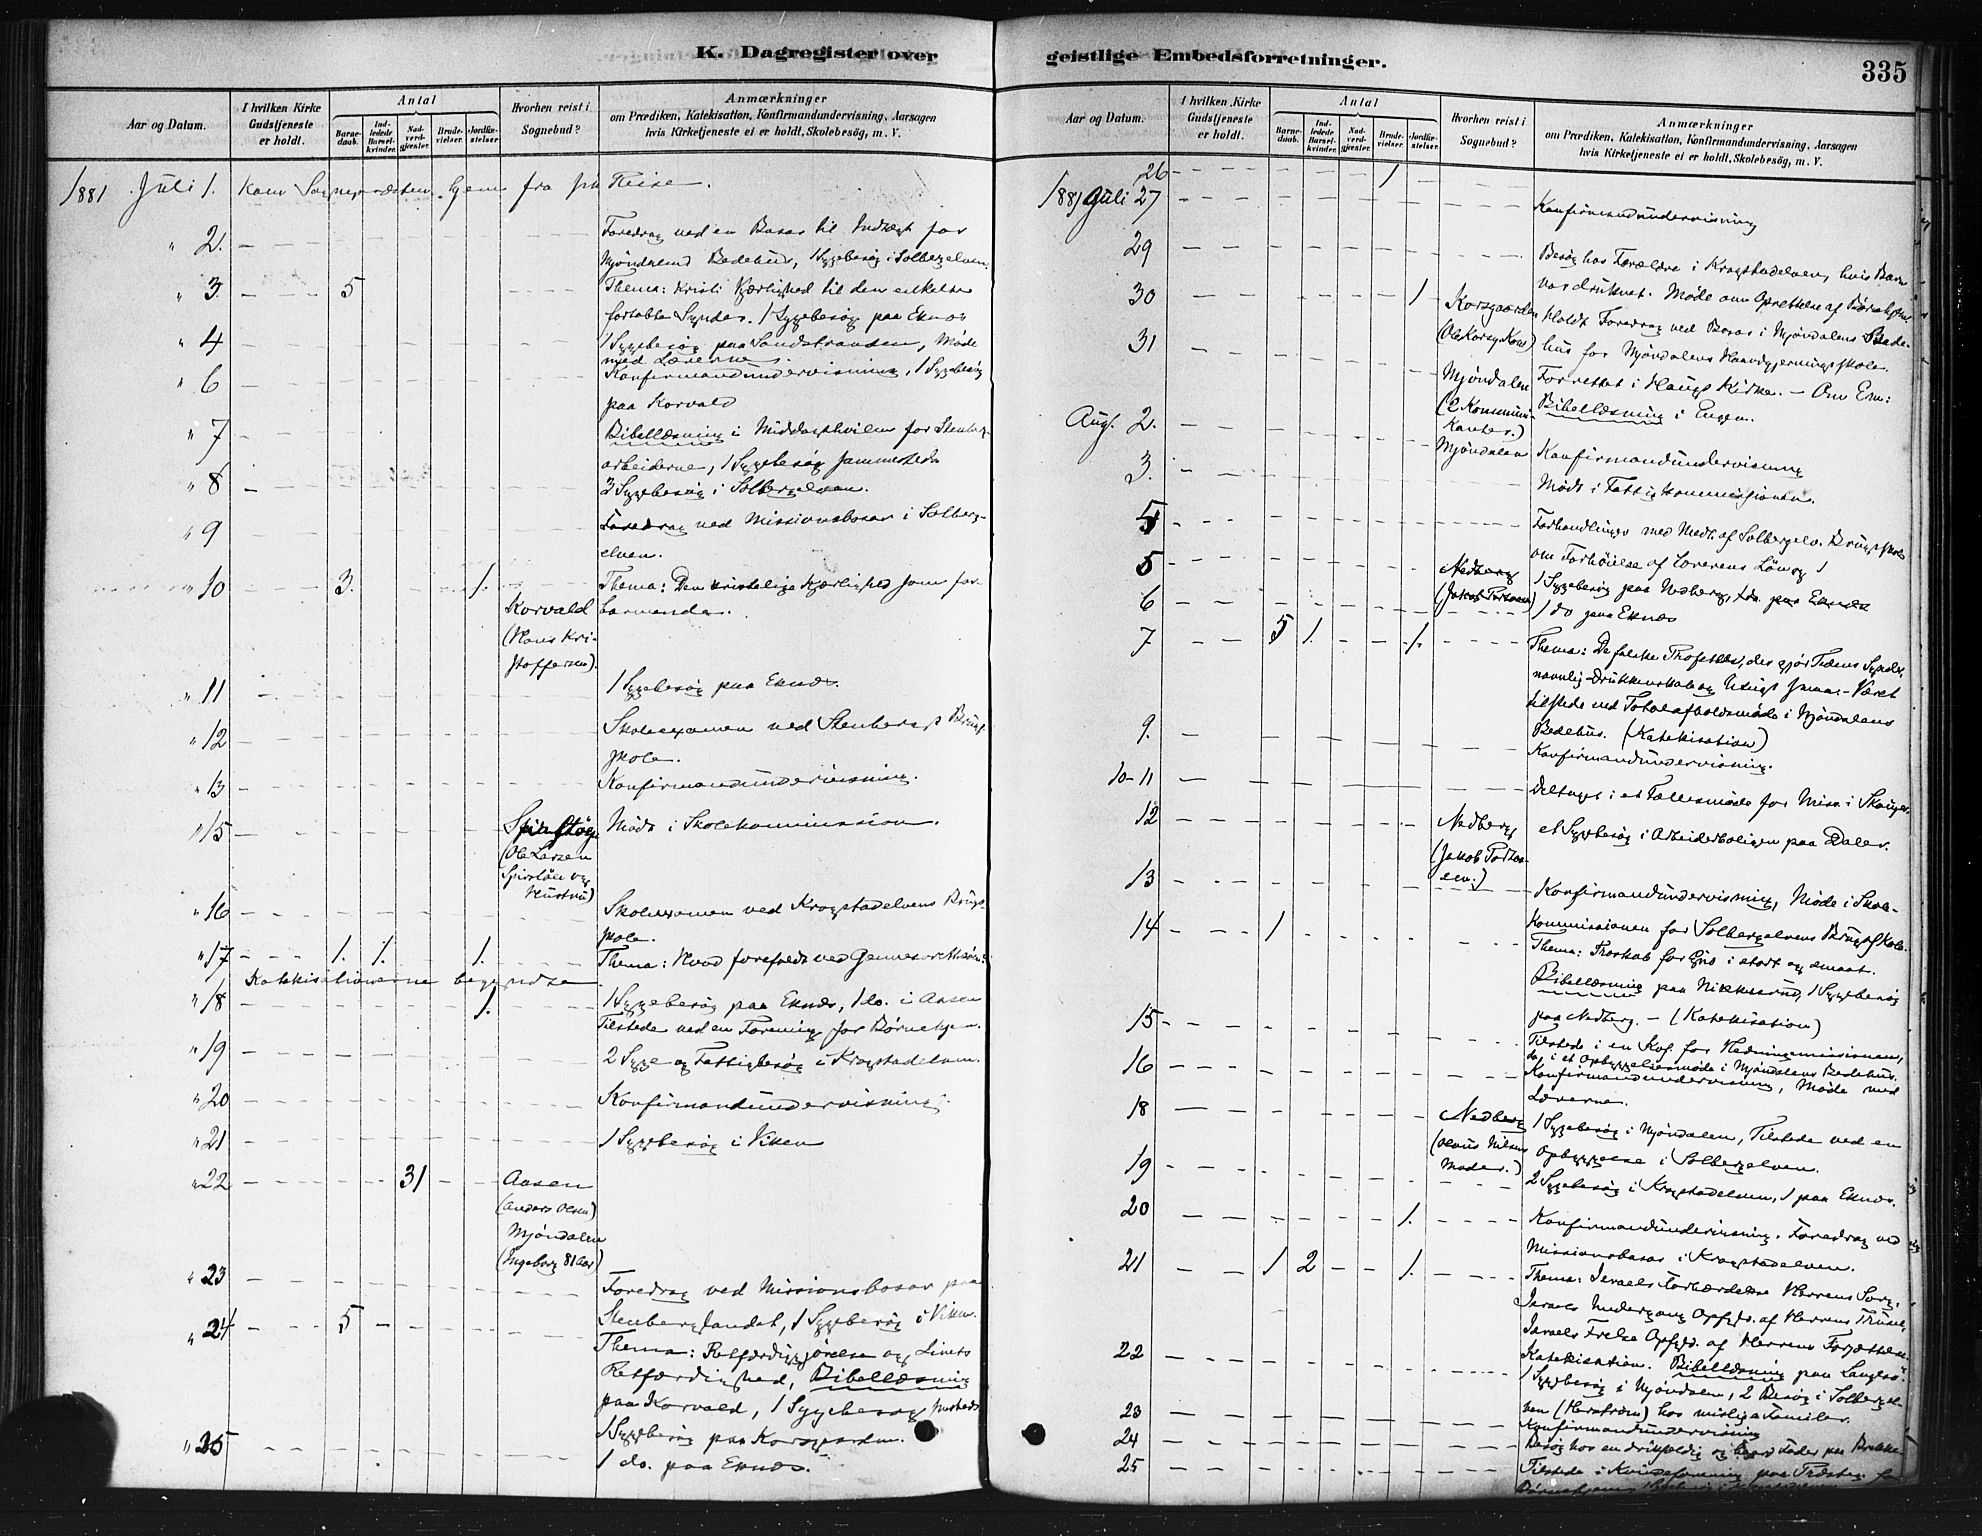 K. Dagregister over
Aar og Datum.
I hvilken Kirke Gudstjeneste er holdt.
Antal
Barnedaab.
Indledede Barselkvinder.
Nadverdgjester.
Brudevielser.
Jordfæstelser
Hvorhen reist i Sognebud?
Anmærkninger
om Prædiken, Katekisation, Konfirmandundervisning, Aarsagen
hvis Kirketjeneste ei er holdt, Skolebesög, m. V.
1881 Juli 1. Kom Sognepræsten hjem fra sin Reise.
" 2. Foredrag ved en Basar til Indtægt for
Mjöndalens Bedehus, 1 Sygebesög i Solbergelven.
" 3. 5 Thema: Kristi Kjærlighed til den enkelte
fortabte Synder. 1 Sygebesög paa Eknes
" 4 1 Sygebesög paa Sandstranden, Möde
med Lærerne.
" 6 Konfirmandundervisning, 1 Sygebesög
paa Korvald
" 7 Bibellæsning i Middagshvilen for Stenberg-
arbeiderne, 1 Sygebesög sammesteds
" 8 3 Sygebesög i Solbergelven.
" 9 Foredrag ved Missionsbasar i Solberg-
elven.
" 10 3. 1. Thema: Den kristelige Kjærlighed som for-
Korvald barmende.
(Hans Kri-
stoffersen).
" 11 1 Sygebesög paa Eknes.
" 12 Skoleexamen ved Stenbergs Brugs-
skole.
" 13 Konfirmandundervisning.
" 15 Möde i Skolekommission.
(Ole Larsen
Hustru)
" 16 Skoleexamen ved Krogstadelvens Brugs-
skole.
" 17 1. 1. 1. Thema: Hvad forefaldt ved Gennesarethsöen?
Katekisationerne begyndte
" 18 1. 1 Sygebesög paa Eknes, 1 do. i Aasen
Tilstede ved en Forening for Börnehjem.
" 19 2 Syge og Fattigbesög i Krogstadelven.
" 20 Konfirmandundervisning.
" 21 1 Sygebesög i Viken
" 22 31 Aasen
(Anders Olsen)
Mjöndalen
(Ingeborg 81 Aar)
" 23 Foredrag ved Missionsbasar paa
Stenbergslandet, 1 Sygebesög i Viken.
" 24 5 Thema: Retfærdiggjörelse og Livets
Retfærdighed, Bibellæsning
paa Korvald, 1 Sygebesög
" 25 1 Sygebesög paa Korsgaarden.
1 do. paa Eknes.
geistlige Embedsforretninger.
335
Aar og Datum.
I hvilken Kirke Gudstjeneste er holdt.
Antal
Barnedaab.
Indledede Barselkvinder.
Nadverdgjester.
Brudevielser.
Jordfæstelser.
Hvorhen reist i Sognebud?
Anmærkninger
om Prædiken, Katekisation, Konfirmandundervisning, Aarsagen
hvis Kirketjeneste ei er holdt, Skolebesög, m. V.
26 1
1881 Juli 27 Konfirmandundervisning
29 Besög hos Forældre i Krogstadelven, hvis Barn
var druknet. Möde om Oprettelse af Börnehjem.
30 1 Korsgaarden Holdt Foredrag ved Basar i Mjöndalens Bede-
hus for Mjöndalens Haandgjerningsskole.
31 Mjöndalen Forrettet i Haugs Kirke. – Om Em:
(2 Kommuni- Bibellæsning i Engen.
kanter.)
Aug. 2. Mjöndalen Konfirmandundervisning
3. Möde i Fattigkommissionen.
4 Forhandlinger med Medl. af Solbergelv. Brugsskole
om Forhöielse af Lærerens Lön
5 Nedberg 1 Sygebesög paa Nedberg, 1 do. paa Eknes
6 1 do paa Eknes
7 5 1. 1. Thema: De falske Profeter, der gjör Tidens Synder,
navnlig Drukkenskab og Utugt smaa – Været
tilstede ved Totalafholdsmöde i Mjöndalens
Bedehus. (Katekisation)
9. Konfirmandundervisning.
10-11 Deltaget i et Fællesmöde for Miss. i Skoger.
12 Nedberg et Sygebesög i Arbeiderboligen paa Daler.
13 Konfirmandundervisning, Möde i Skole-
kommissionen for Solbergelvens Brugsskole.
14 1 Thema: Troskab for Gud i stort og smaat.
Bibellæsning paa Nikkerud, 1 Sygebesög
paa Nedberg. – (Katekisation)
15 Tilstede i en Kvf. for Hedningemissionen,
do, i et Opbyggelsesmöde i Mjöndalens Bedehus.
16 Konfirmandundervisning, Möde med
Lærerne.
18 Nedberg 1 Sygebesög i Mjöndalen, Tilstede ved en
Opbyggelse i Solbergelven.
Moder.)
19 2 Sygebesög i Krogstadelven, 1 paa Eknes.
20 1. Konfirmandundervisning. Foredrag ved
Missionsbasar i Krogstadelven.
21 1 2 1. Thema: Israels Forhærdelse Herrens Sorg.
Israels Undergang Opfyld. af Herrens Trusel,
Israels Frelse Opfyld. af Herrens Forjættelse
Katekisation. Bibellæsning paa
22 1 Sygebesög i Mjöndalen, 2 Besög i Solbergel-
ven hos Familier.
23 Konfirmandundervisning
24 Besög hos en
25 Tilstede i Kvindeforening paa